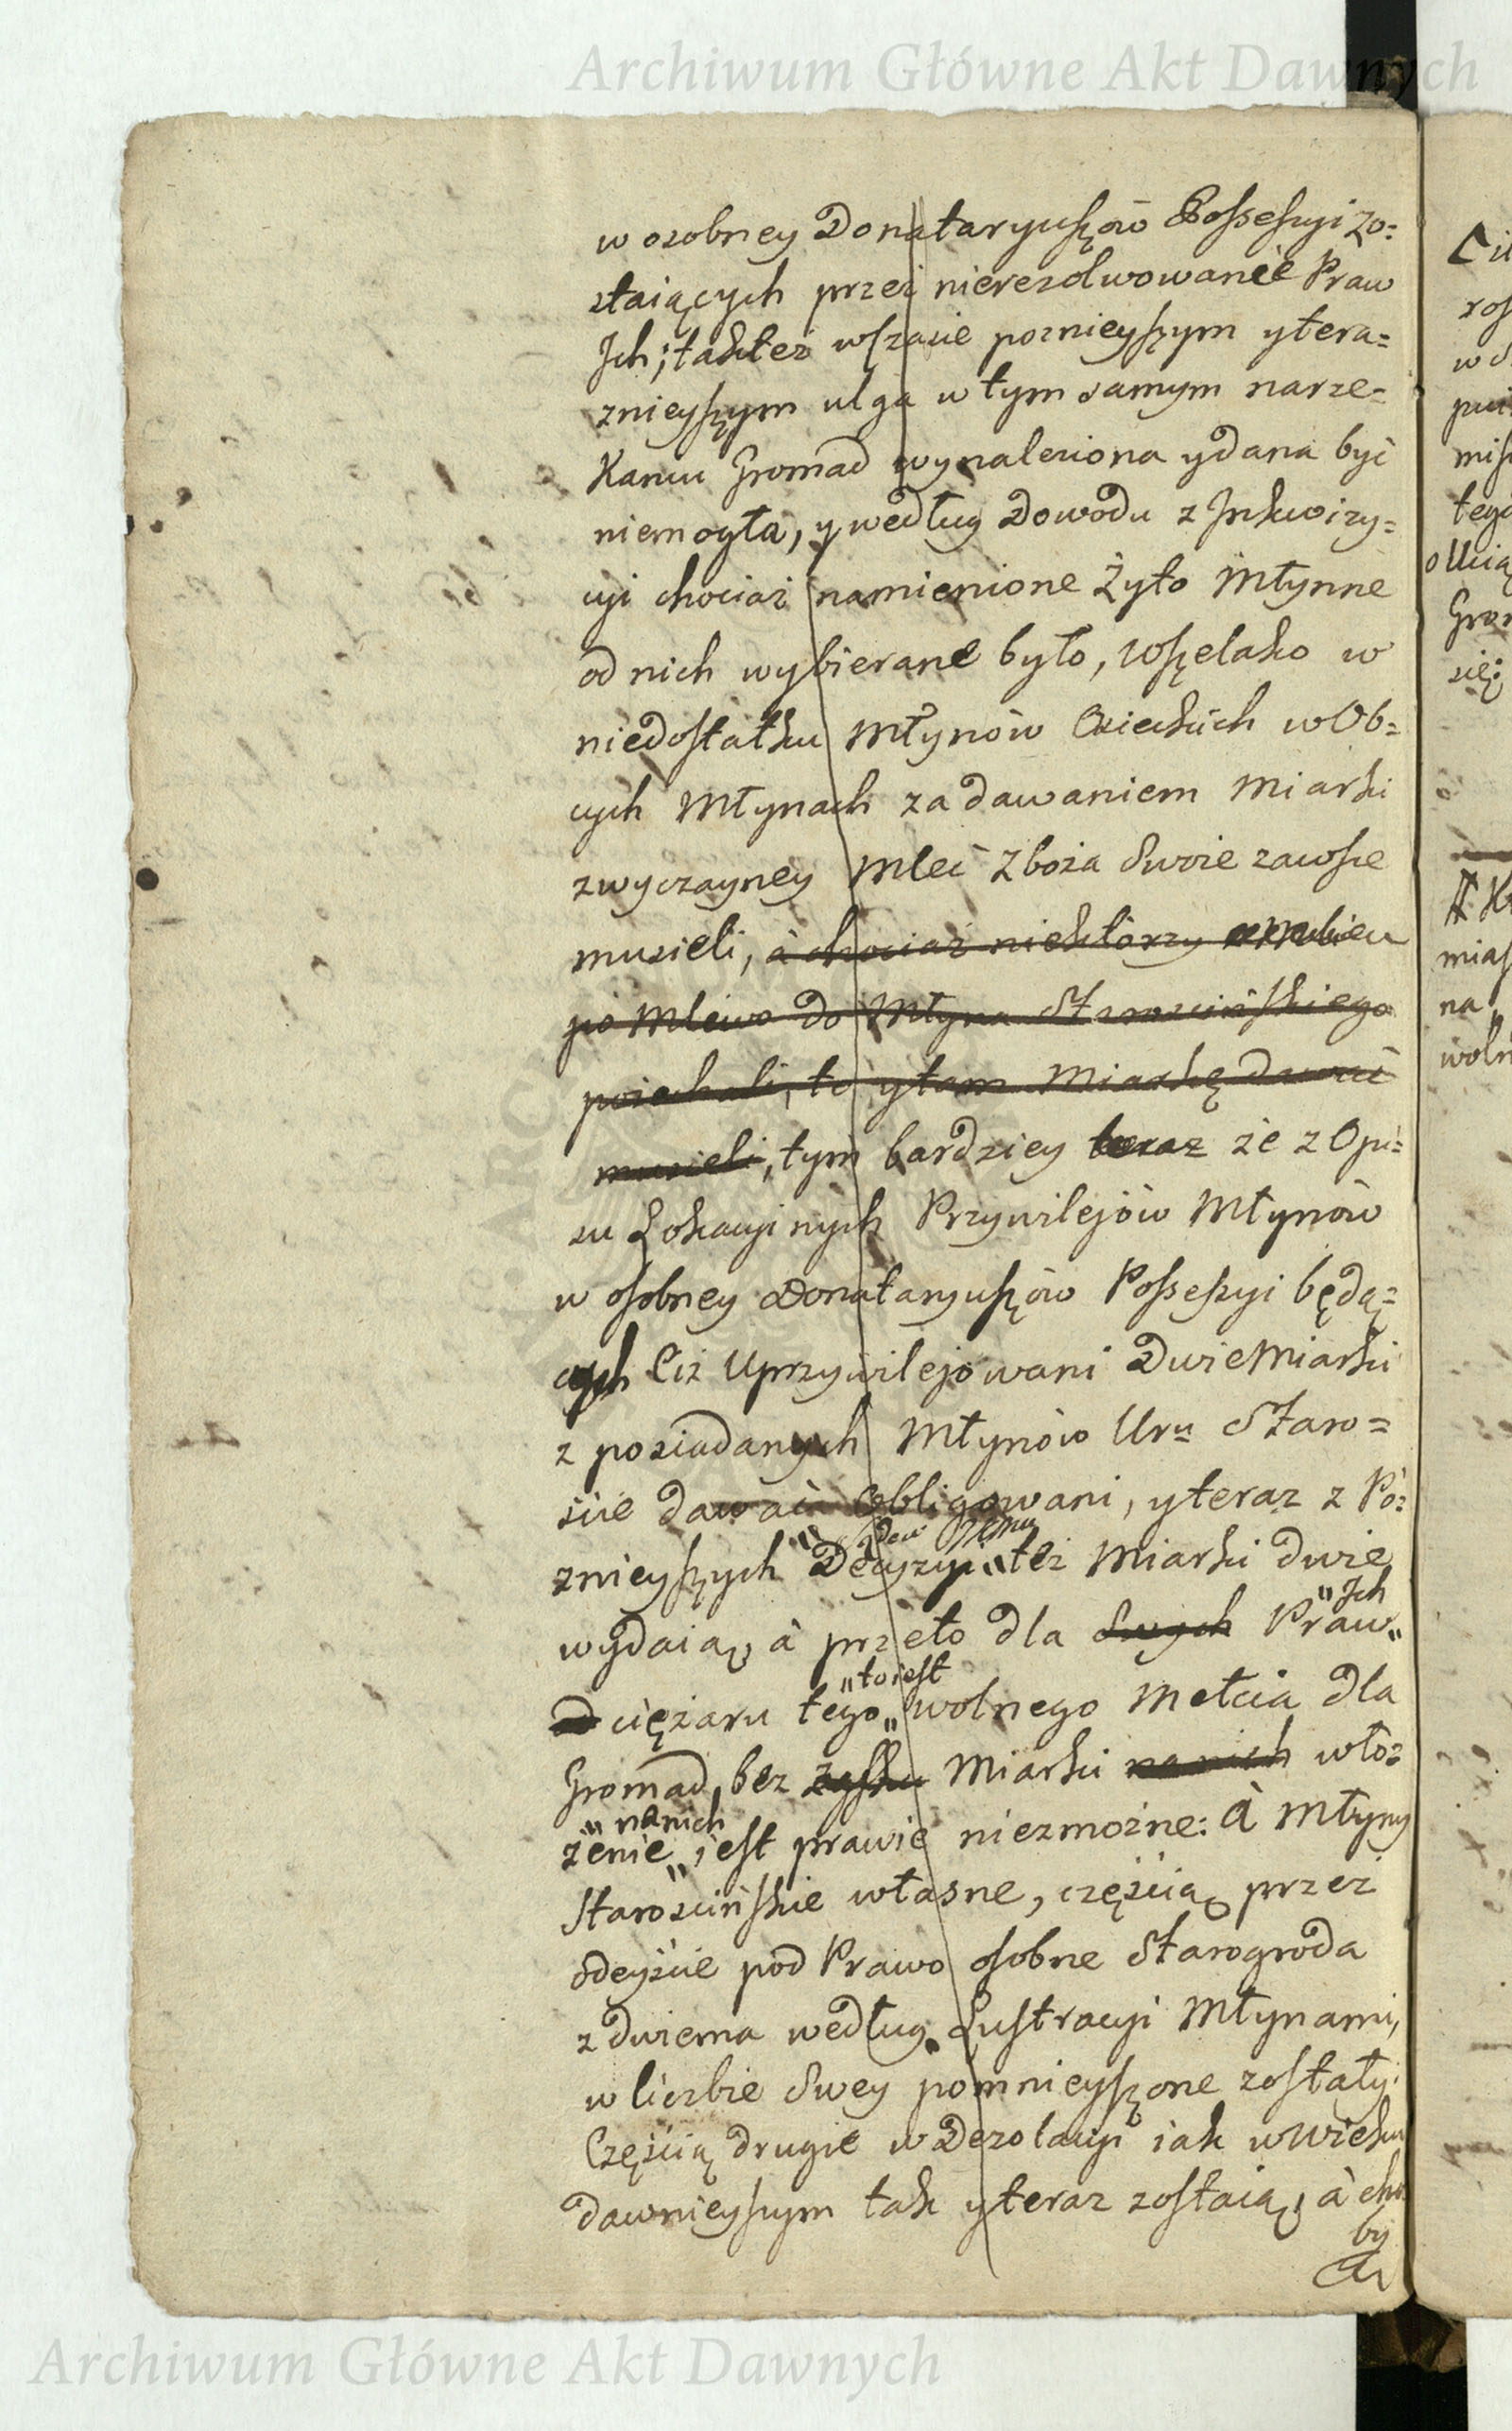 Archiwum Główne Akt Dawnych
w osobney Donataryuszow Possessyi zo=
staiących przez nierezolwowanie Praw
Jch; takteż wczasie poznieyszym y tera=
znieyszym ulga w tym samym narze=
kaniu Gromad wynaleziona y dana być
niemogła, y według Dowodu z Jnkwizy=
cyi chociaż namienione Żyto Młynne
od nich wybierane było, Wszelako w
niedostatku Młynow Osieckich w Ob=
cych Młynach za dawaniem Miarki
zwyczayney Mleć Zboża Swoie zawsze
musieli, à chociaż niektórzy
po Mlewo do Młyna Staroscińskiego
poiechali, to y tam Miarkę dawać
musieli, tym bardziey teraz że z Opi=
su Lokacyinych Przywilejów Młynow
w osobney Donataryuszow Possessyi będą=
cych Ciż Uprzywilejowani Dwie Miarki
z posiadanych Młynow Uru Staro=
ście dawać Obligowani, y teraz z Po=
znieyszych Decyzyi też Miarki dwie
wydaią, à przeto dla Swych Praw
"Jch
od ciężaru tego wolnego Mełcia dla
"toiest
Gromad bez Miarki na nich wło=
żenie iest prawie niezmożne: à Młyny
"na nich
Starościńskie własne, częścią przez
odeyście pod Prawo osobne Starogroda
z dwiema według Lustracyi Młynami,
w liczbie Swey pomnieyszone zostały.
Częścią drugie w Dezolacyi iak w wieku
dawnieyszym tak y teraz zostaią, à cho
by
Archiwum Główne Akt Dawnych